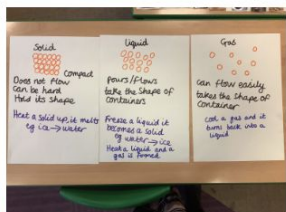 Solid
Compact
Does not flow
can be hard
Hold its shape
Heat a solid up, it melts
eg ice → water
Liquid
Pours/flows
take the shape of
containers
Freeze a liquid it
becomes a solid
eg water → ice
Heat a liquid and a
gas is formed
Gas
can flow easily
takes the shape of
container
cool a gas and it
turns back into a
liquid